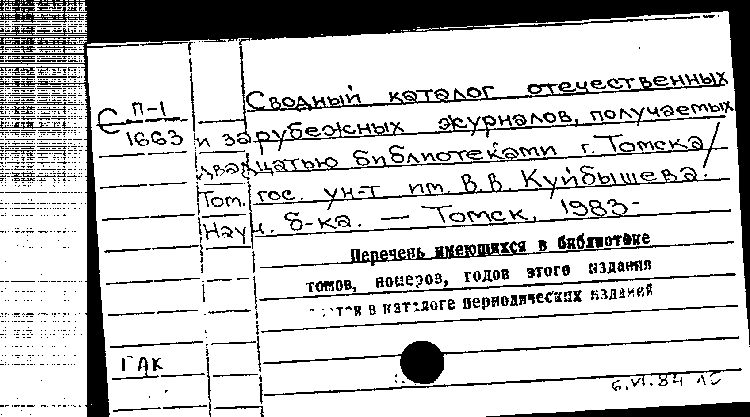 С П-1
1663
Сводный каталог отечественных
и зарубежных журналов, получаемых
двадцатью библиотеками г. Томска /
Том. гос. ун-т им. В.В. Куйбышева.
Науч. б-ка. — Томск, 1983-
Перечень имеющихся в библиотеке
томов, номеров, годов этого издания
в каталоге периодических изданий
ГАК
6.VI.84